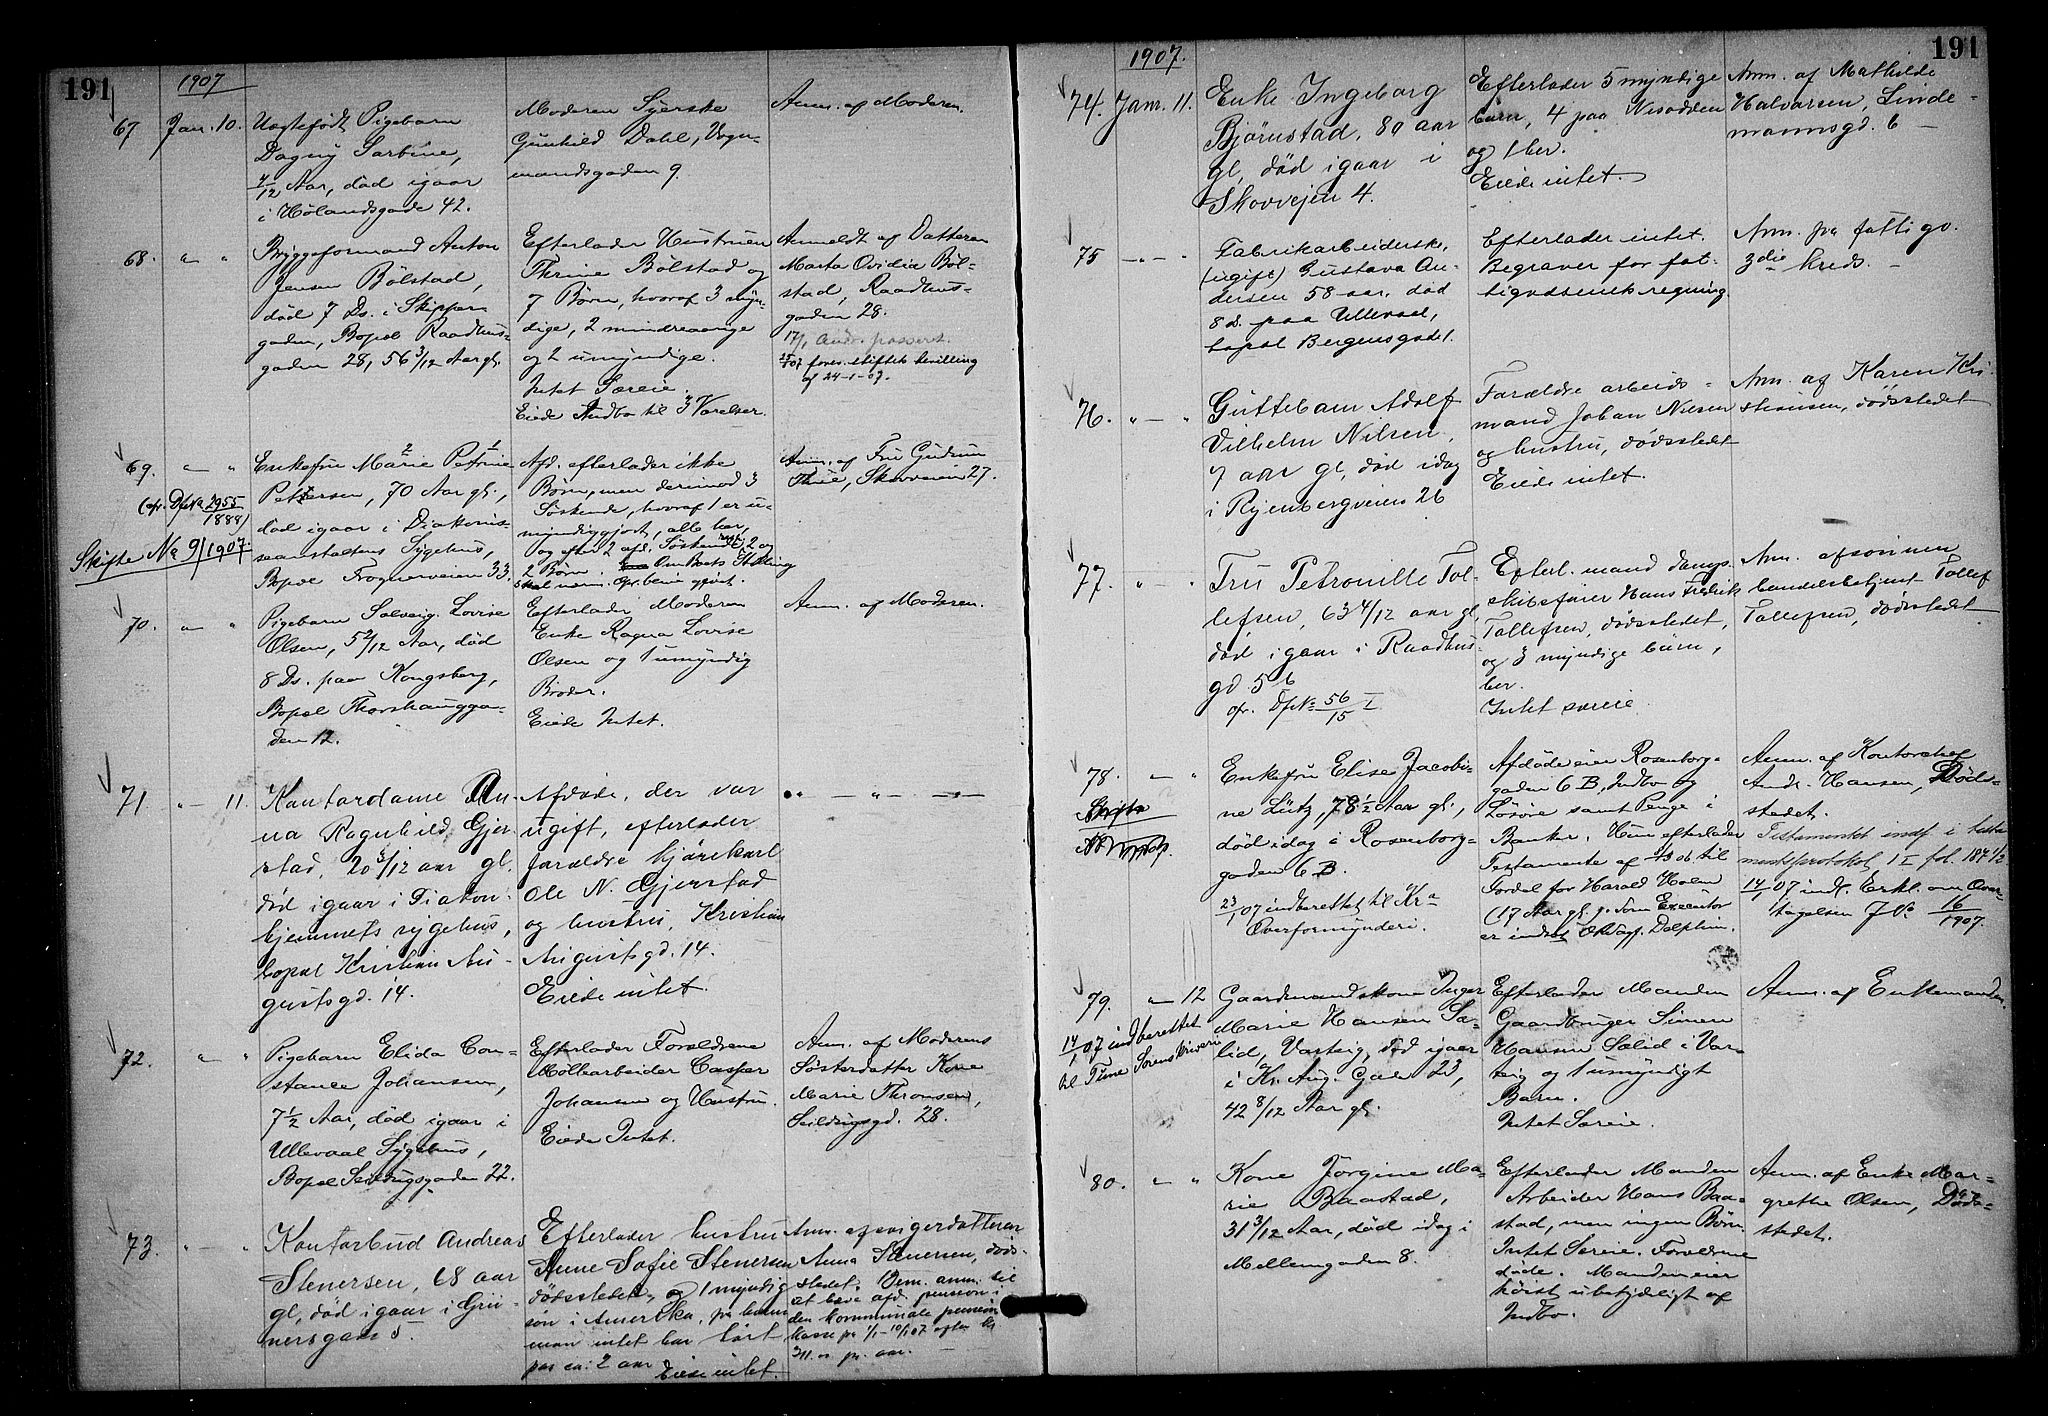 191
1907
67
Jan. 10.
Uægtefødt Pigebarn
Dagny Sarbine,
7/12 Aar, død igaar
i Hølandsgade 42.
Moderen Syerske
Gunhild Dahl, Vogn-
mandsgaden 9.
Anm. af Moderen.
68. " "
Bryggeformand Anton
Jensen Bølstad,
død 7 Ds. i Skipper-
gaden, Bopæl Raadhus-
gaden 28, 56 3/12 Aar gl.
Efterlader Hustruen
Thrine Bølstad og
7 Børn, hvoraf 3 myn-
dige, 2 mindreaarige
og 2 umyndige.
Intet Særeie.
Eiede Indbo til 3 Værelser.
Anmeldt af Datteren
Marta Ovidia Bøl-
stad, Raadhus-
gaden 28.
17/1 passert.
25/1 07 forev. skiftets bevilling
af 24-1-07.
69. — "
(cfr. Dfn 2955/1888)
Skifte No 9/1907.
Enkefru Marie Petrine
Pettersen, 70 Aar gl.,
død igaar i Diakonis-
seanstaltens Sygehus,
Bopæl Frognerveien 33.
Afd. efterlader ikke
Børn, men derimod 3
Søskende, hvoraf 1 er u-
myndiggjort, alle her,
og efter 2 afd. Søskende resp. 2 og
2 Børn. Om Boets Stilling
Anm. af Fru Gudrun
Thue, Skovveien 27.
70. " "
Pigebarn Solveig Lovise
Olsen, 5 2/12 Aar, død
8 Ds. paa Kongsberg,
Bopæl Thorshauggа-
den 12.
Efterlader Moderen
Enke Ragna Lovise
Olsen og 1 umyndig
Broder.
Eiede Intet.
Anm. af Moderen.
71 " — 11.
Kontordame An-
na Ragnhild Gjer-
stad, 20 3/12 aar gl.
død igaar i Diakon-
hjemmets sygehus,
bopæl Kristian Au-
gustsgd. 14.
Afdøde, der var
ugift, efterlader
forældre kjørekarl
Ole N. Gjerstad
og hustru, Kristian
Augustsgd. 14.
Eiede intet.
" — " — " —
72. " "
Pigebarn Elida Con-
stance Johansen,
7 1/2 Aar, død igaar i
Ullevaal Sygehus,
Bopæl Seildugsgaden 22.
Efterlader Forældrene
Møllearbeider Casper
Johansen og Hustru.
Eiede Intet.
Anm. af Moderens
Søsterdatter Kone
Marie Thronsen,
Seildugsgd. 28.
73. " — "
Kontorbud Andreas
Stenersen, 68 aar
gl, død igaar i Grü-
nersgade 5.
Efterlader hustru
Anne Sofie Stenersen
dødsstedet, og 1 myndig
søn i Amerika, fra hvem
man intet har hørt
paa ca: 2 aar
Eiede intet.
Anm. af svigerdatteren
Anna Stenersen, døds-
stedet. Dem. anm. sie
at have afd. pension i
den kommunale pensions
kasse fra 1/1 - 10/1 07 efter kr
311.- pr. aar.
191
1907.
74. Jan. 11.
Enke Ingeborg
Bjørnstad, 80 aar
gl, død igaar i
Skovvejen 4.
Efterlader 5 myndige
børn, 4 paa Nesodden
og 1 her.
Eiede intet.
Anm. af Mathilde
Halvorsen, Linde-
mannsgd. 6
75 — " — "
Fabrikarbeiderske,
(ugift) Gustava An-
dersen 58 aar, død
8 d. paa Ullevaal,
bopæl Bergensgd 1.
Efterlader intet.
Begraves for fat-
tigvæsenets regning.
Anm. fra fattigv.
3die kreds.
76. " — "
Guttebarn Adolf
Vilhelm Nilsen,
7 aar gl, død idag
i Ryenbergveien 26
Forældre arbeids-
mand Johan Nilsen
og hustru, dødsstedet
Eiede intet.
Anm. af Karen Kri-
stiansen, dødsstedet
77. " — "
Fru Petronille Tol-
lefsen, 63 4/12 aar gl,
død igaar i Raadhus-
gd 5 b
cfr. Dfn 56/15 I
Efterl. mand damp-
skibsfører Hans Fredrik
Tollefsen, dødsstedet,
og 3 myndige børn,
her.
Intet særeie.
Anm. af sønnen
handelsbetjent Tollef
Tollefsen, dødsstedet
78. — "
Skifte
Enkefru Elise Jacobi-
ne Lütz, 78 1/2 Aar gl.,
død idag i Rosenborg-
gaden 6 B.
23/1 07 indberettet til Kra
Overformynderi.
Afdøde eier Rosenborg-
gaden 6 B, Indbo og
Løsøre samt Penge i
Banker. Hun efterlader
Testamente af 06 til
Fordel for Harald Holm
(17 Aar gl.). Som Executor
er indsat Ovrsagf. Dolphin.
Anm. af Kontorchef
Andr. Hansen, Døds-
stedet.
Testamentet indf. i testa
mentsprotokol 1 I fol. 187 1/2
14/1 07 indl. Erkl. om Over-
tagelsen J No 16/1907.
79. " 12
14/1 07 indberettet
til Tune Sorenskriveri
Gaardmandskone Inger
Marie Hansen Sæ-
lid, Varteig, død igaar
i Kr. Aug. Gade 23,
42 8/12 Aar gl.
Efterlader Manden
Gaardbruger Simen
Hansen Sælid i Var-
teig og 1 umyndigt
Barn.
Intet Særeie.
Anm. af Enkemanden.
80. " "
Kone Jørgine Ma-
rie Baastad,
31 3/12 Aar, død idag i
Møllergaden 8.
Efterlader Manden
Arbeider Hans Baa-
stad, men ingen Børn.
Intet Særeie. Forældrene
døde. Manden eier
høist ubetydeligt af
Indbo.
Anm. af Enke Mar-
grethe Olsen, Døds-
stedet.